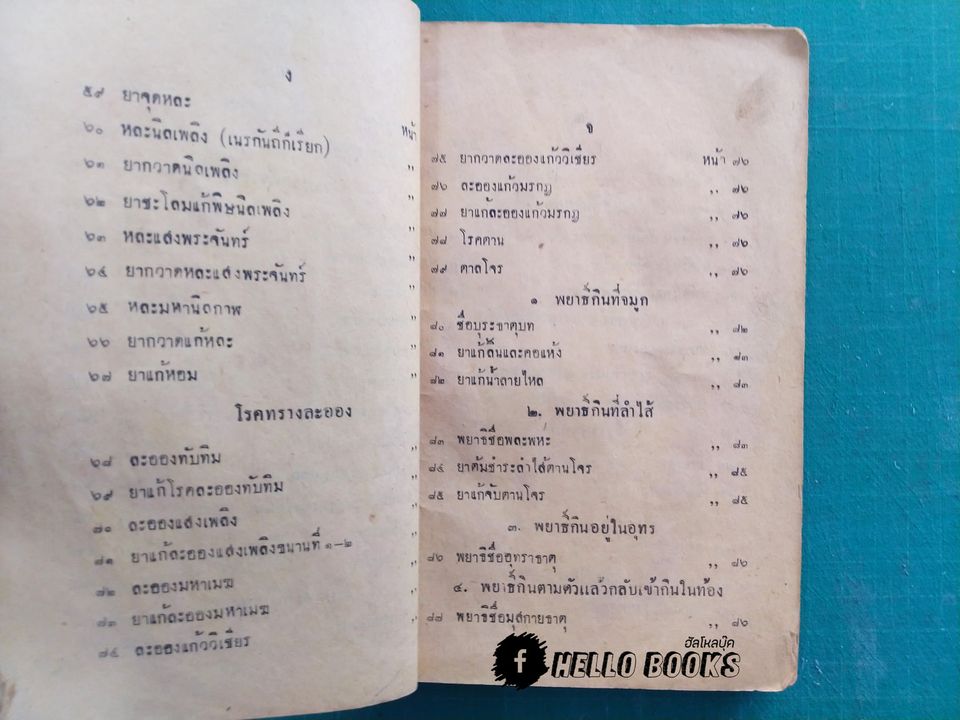 ง
หน้า
๕๙ ยาจุดหละ
๖๐ หละนิลเพลิง (เนรกันถีก็เรียก) ,,
๖๑ ยากวาดนิลเพลิง ,,
๖๒ ยาชะโลมแก้พิษนิลเพลิง ,,
๖๓ หละแสงพระจันทร์ ,,
๖๔ ยากวาดหละแสงพระจันทร์ ,,
๖๕ หละมหานิลกาฬ ,,
๖๖ ยากวาดแก้หละ ,,
๖๗ ยาแก้หอม ,,
โรคทรางละออง
๖๘ ละอองทับทิม ,,
๖๙ ยาแก้โรคละอองทับทิม ,,
๗๐ ละอองแสงเพลิง ,,
๗๑ ยาแก้ละอองแสงเพลิงขนานที่ ๑-๒ ,,
๗๒ ละอองมหาเมฆ ,,
๗๓ ยาแก้ละอองมหาเมฆ ,,
๗๔ ละอองแก้ววิเชียร ,,
จ
๗๕ ยากวาดละอองแก้ววิเชียร หน้า ๗๖
๗๖ ละอองแก้วมรกฎ ,, ๗๖
๗๗ ยาแก้ละอองแก้วมรกฎ ,, ๗๖
๗๘ โรคตาน ,, ๗๖
๗๙ ตาลโจร ,, ๗๖
๑ พยาธิ์กินที่จมูก
๘๐ ชื่อบุระธาตุบท ,, ๘๒
๘๑ ยาแก้ลิ้นและคอแห้ง ,, ๘๓
๘๒ ยาแก้น้ำลายไหล ,, ๘๓
๒. พยาธิ์กินที่ลำไส้
๘๓ พยาธิชื่อพละพหะ ,, ๘๓
๘๔ ยาต้มชำระลำไส้ตานโจร ,, ๘๕
๘๕ ยาแก้จับตานโจร ,, ๘๕
๓. พยาธิ์กินอยู่ในอุทร
๘๖ พยาธิชื่ออุทราธาตุ ,, ๘๖
๔. พยาธิ์กินตามตัวแล้วกลับเข้ากินในท้อง
๘๗ พยาธิชื่อมุสกายธาตุ ,, ๘๖
ฮัลโหลบุ๊ค
f HELLO BOOKS